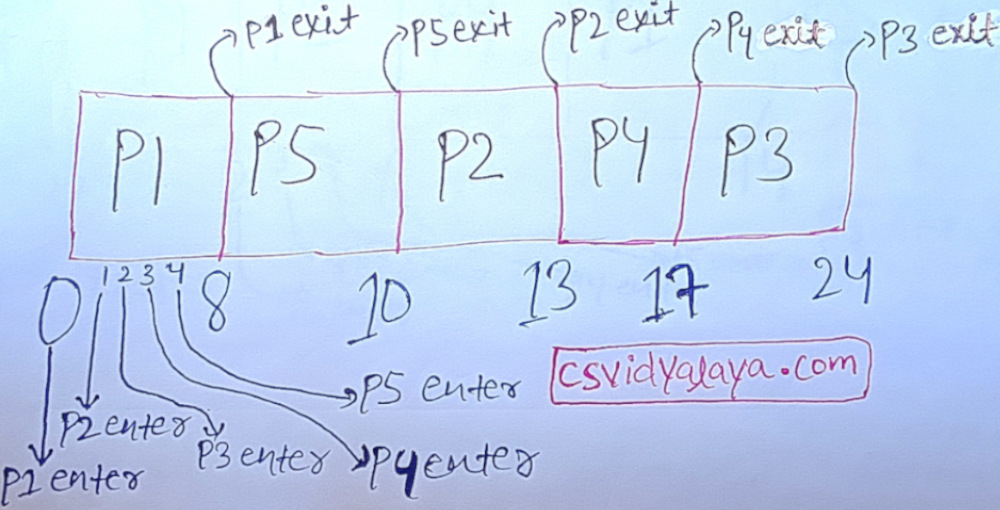 P1 exit P5 exit P2 exit P4 exit P3 exit
P1 P5 P2 P4 P3
0 1 2 3 4 8 10 13 17 24
csvidyalaya.com
P5 enter
P2 enter
P3 enter P4 enter
P1 enter